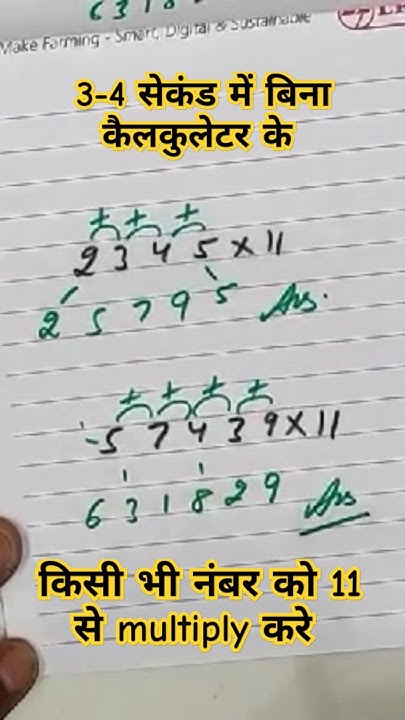 6 3 1 8
Make Farming - Smart, Digital & Sustainable
3-4 सेकंड में बिना
कैलकुलेटर के
+ + +
2 3 4 5 × 11
2 5 7 9 5 Ans.
+ + + +
5 7 4 3 9 × 11
1 1
6 3 1 8 2 9 Ans
किसी भी नंबर को 11
से multiply करे